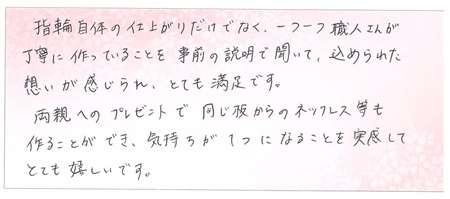 指輪自体の仕上がりだけでなく、一つ一つ職人さんが
丁寧に作っていることを事前の説明で聞いて、込められた
想いが感じられ、とても満足です。
両親へのプレゼントで同じ板からのネックレス等も
作ることができ、気持ちが1つになることを実感して
とても嬉しいです。